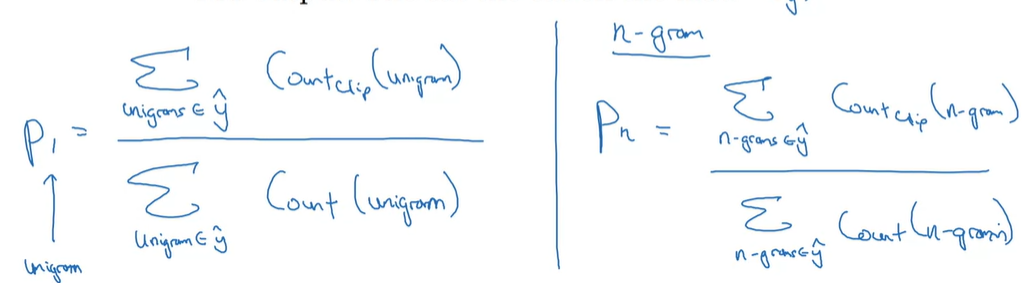 P₁ = Σ_{unigrams ∈ ŷ} Count_clip (unigram) / Σ_{unigram ∈ ŷ} Count (unigram)
unigram
n-gram
Pₙ = Σ_{n-grams ∈ ŷ} Count_clip (n-gram) / Σ_{n-grams ∈ ŷ} Count (n-gram)